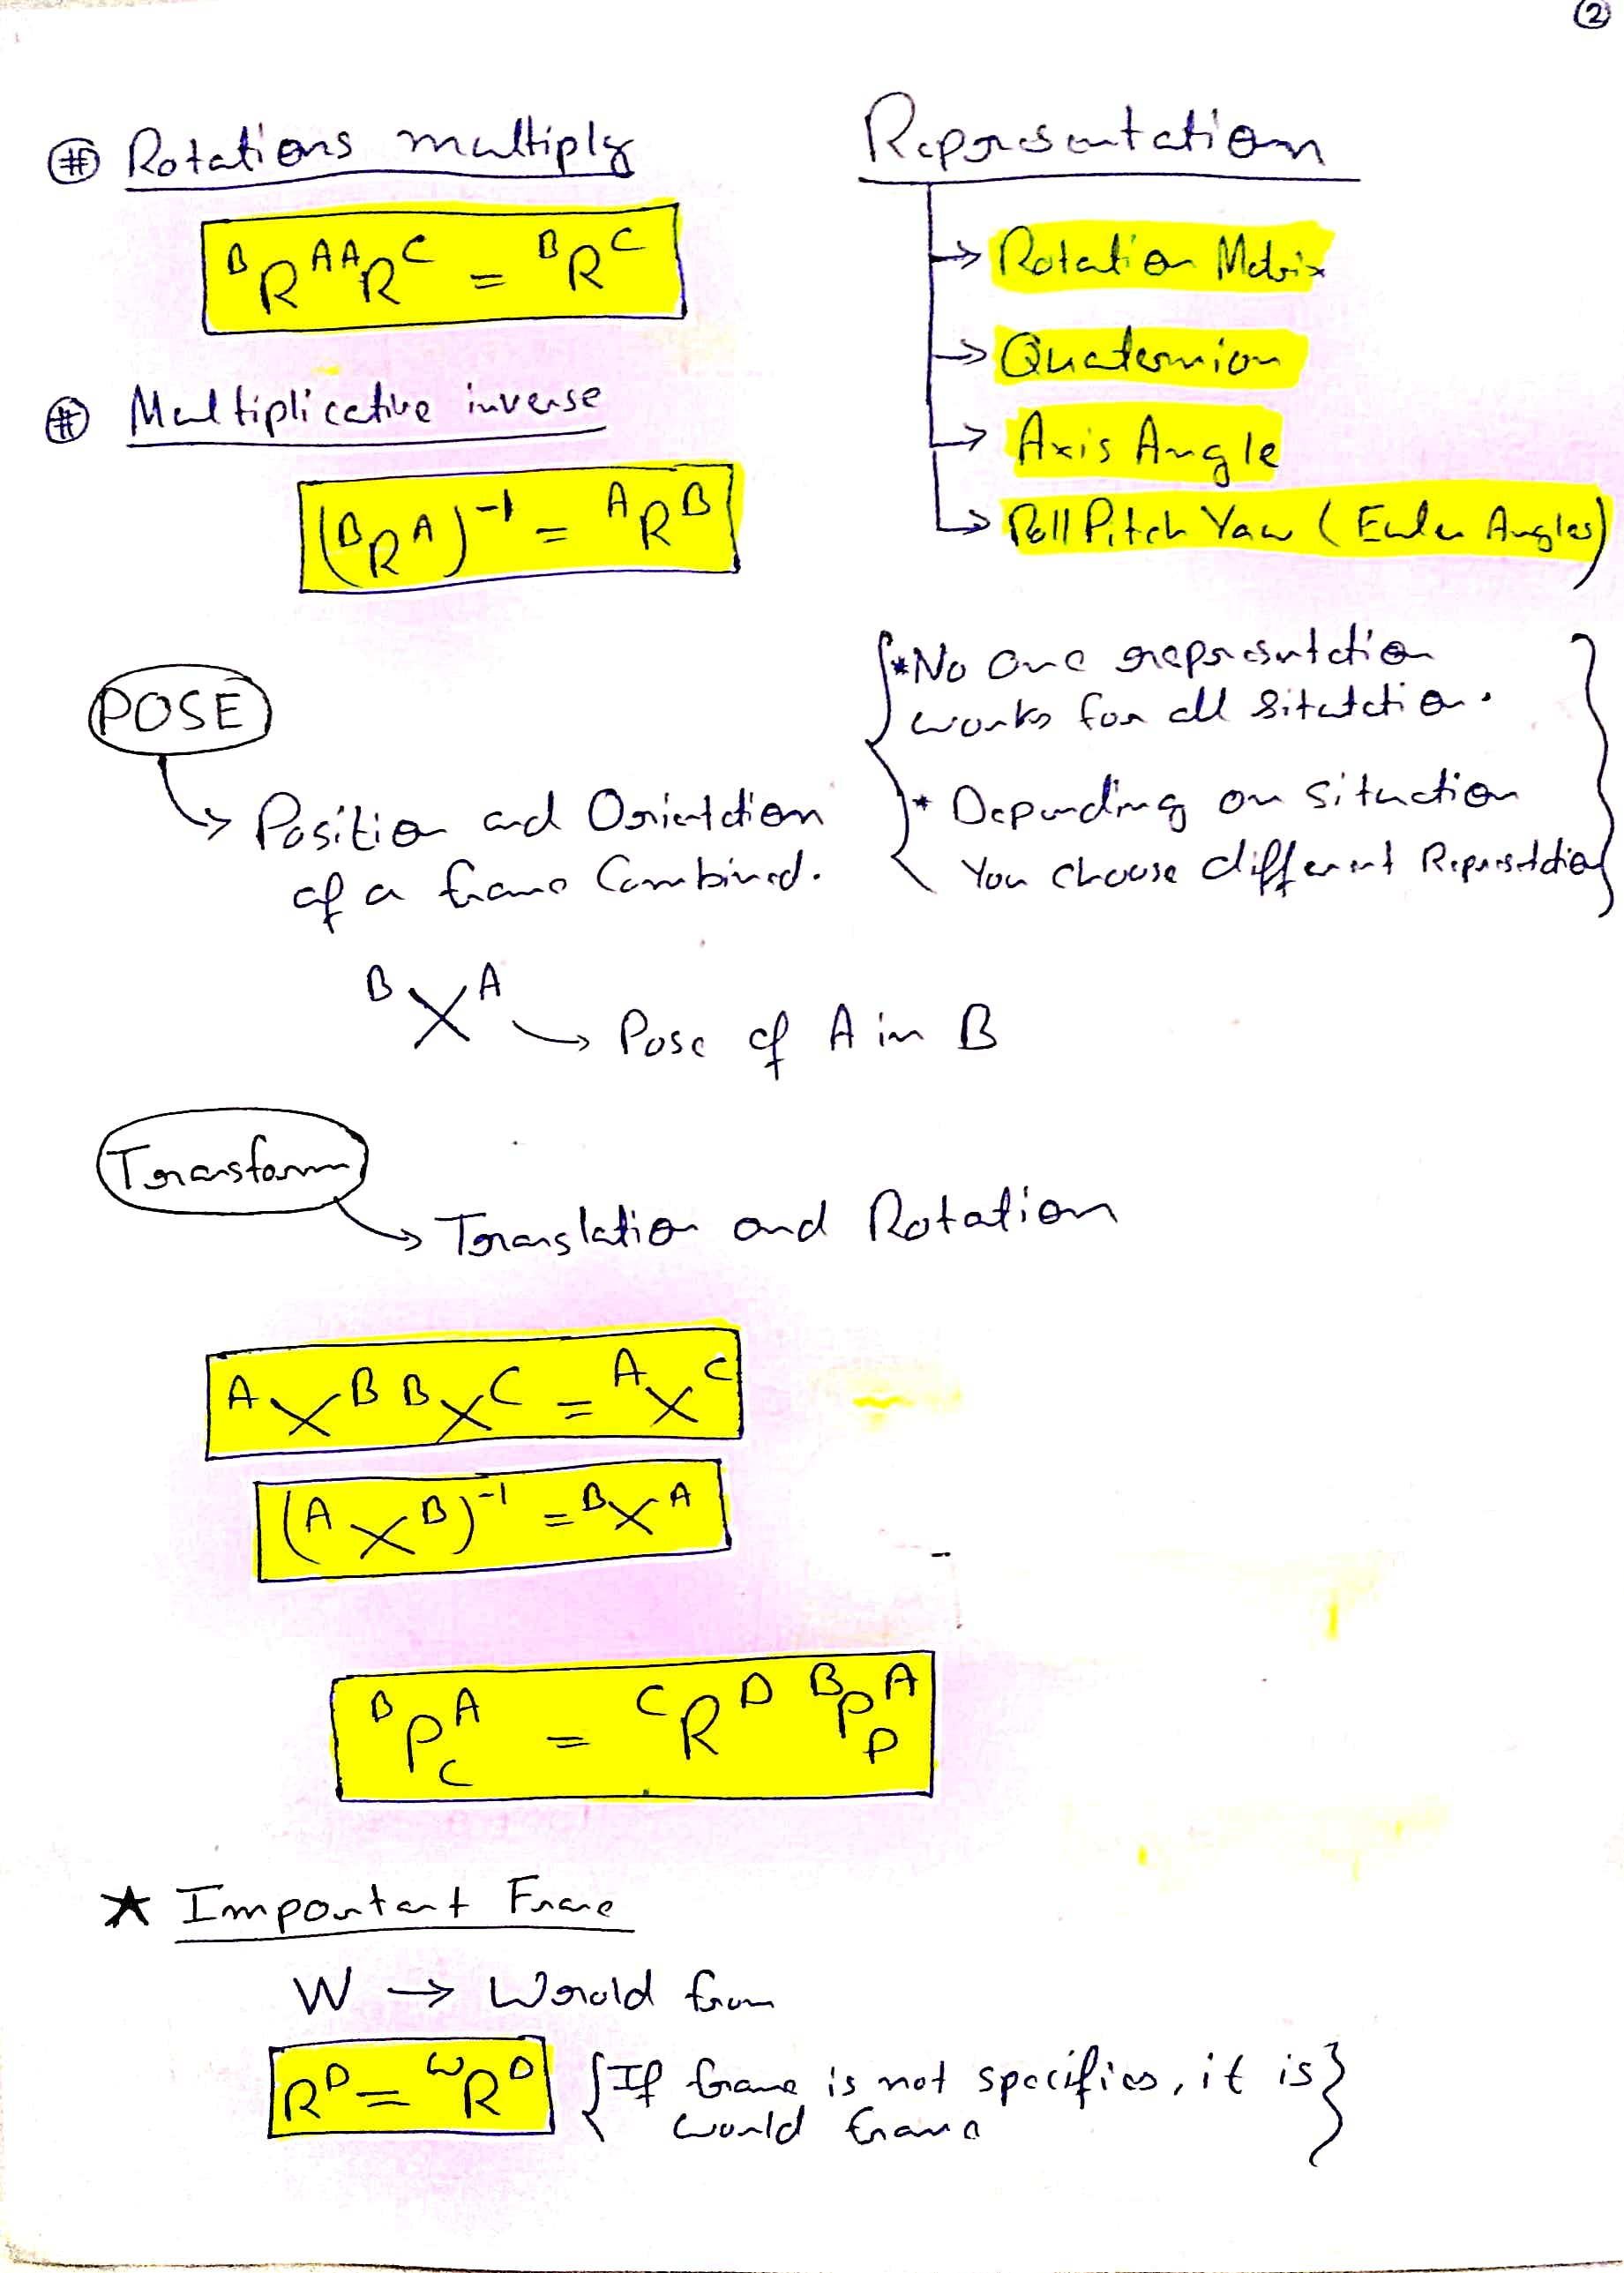 2
# Rotations multiply
ᴮRᴬ ᴬRᶜ = ᴮRᶜ
# Multiplicative inverse
(ᴮRᴬ)⁻¹ = ᴬRᴮ
Representation
→ Rotation Matrix
→ Quaternion
→ Axis Angle
→ Roll Pitch Yaw (Euler Angles)
{ * No one representation
works for all situtation.
* Depending on situation
You choose different Representation }
POSE
→ Position and Orientation
of a frame Combined.
ᴮXᴬ → Pose of A in B
Transform
→ Translation and Rotation
ᴬXᴮ ᴮXᶜ = ᴬXᶜ
(ᴬXᴮ)⁻¹ = ᴮXᴬ
ᴮP^A_C = ᶜRᴰ ᴮP^A_D
★ Important Frame
W → World fram
Rᴰ = ᵂRᴰ {If frame is not specifies, it is}
world frame